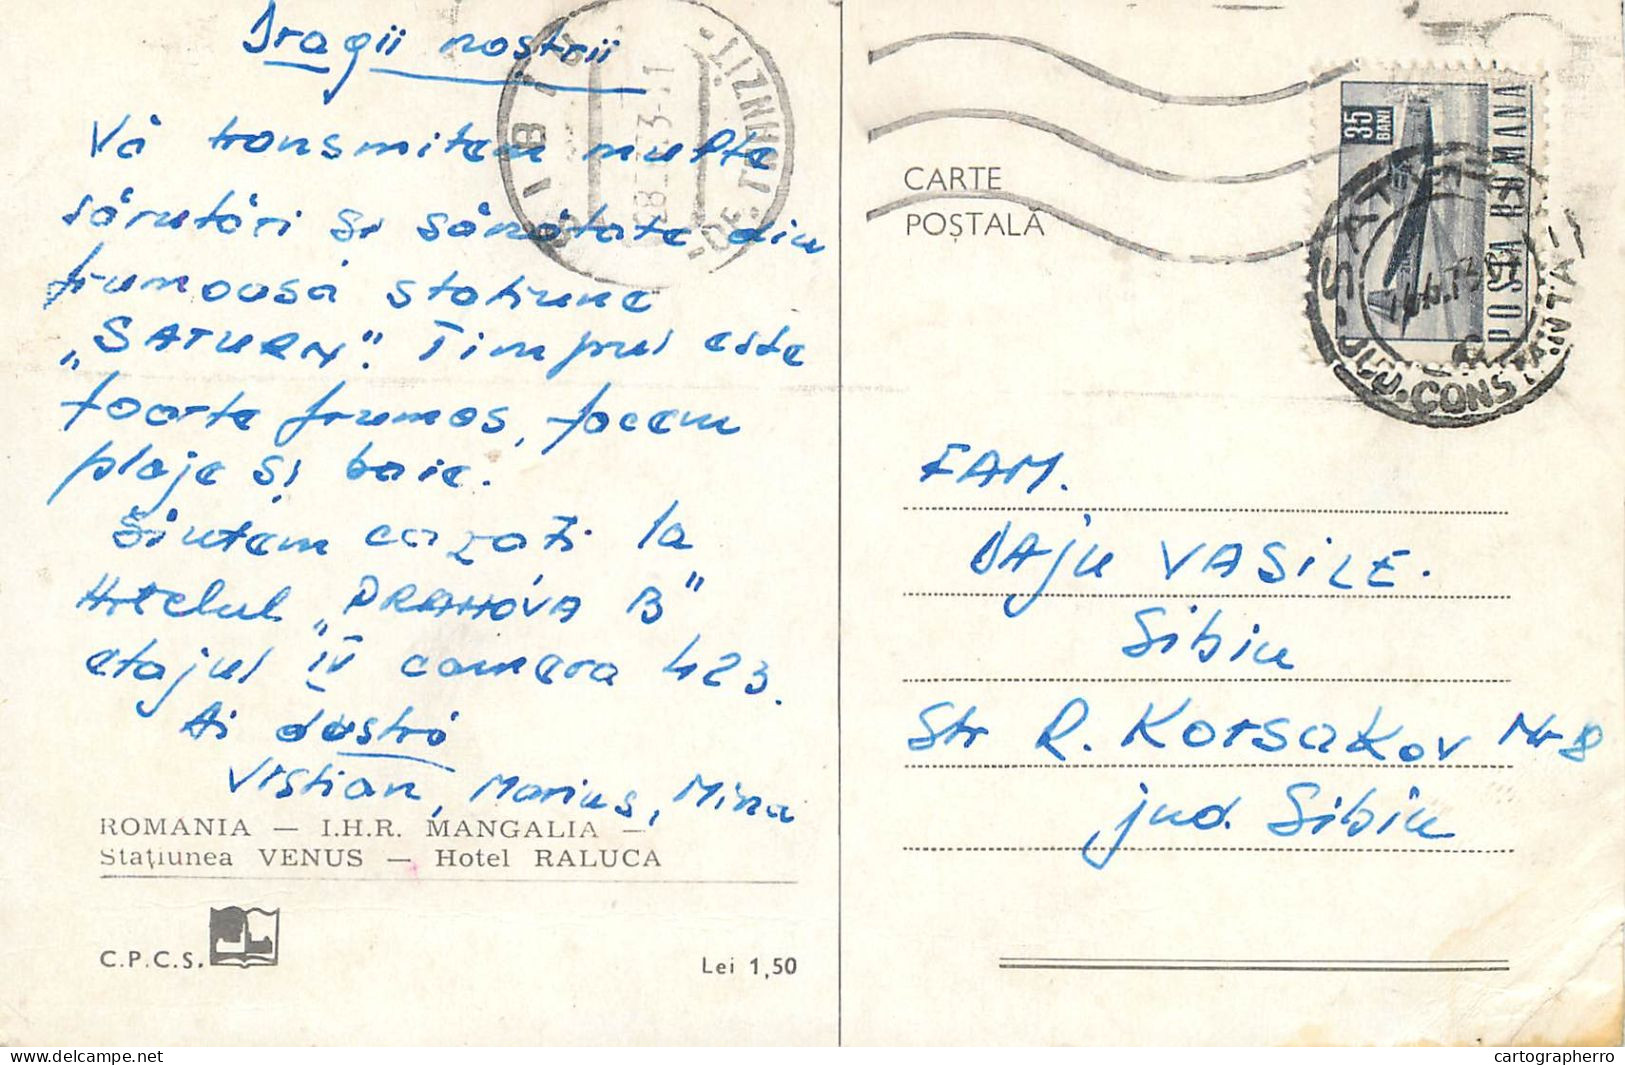 Dragii noștrii
Vă transmitem multe
sărutări și sănătate din
frumoasă stațiune
„SATURN". Timpul este
foarte frumos, facem
plaje și baie.
Sîntem cazați la
Hotelul „PRAHOVA B"
etajul IV camera 423.
Ai dostri
Vistian, Marius, Mina
ROMANIA — I.H.R. MANGALIA —
Stațiunea VENUS — Hotel RALUCA
C.P.C.S.
Lei 1,50
SIBIU
CARTE
POȘTALĂ
35
BANI
POSTA ROMANA
SATURN
JUD. CONSTANTA
FAM.
DAJu VASILE.
Sibiu
Str R. Korsakov Nr 8
jud. Sibiu
cartographerro